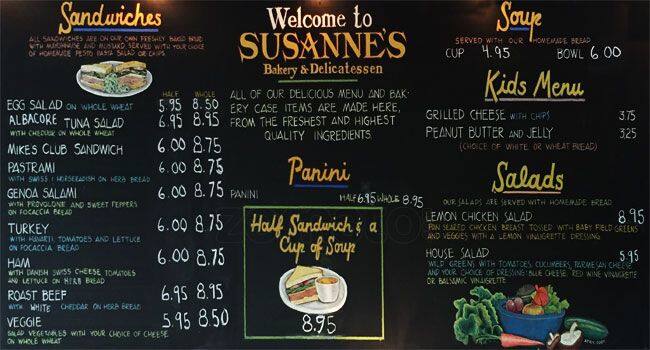 Sandwiches
ALL SANDWICHES ARE ON OUR OWN FRESHLY BAKED BREAD
WITH MAYONNAISE AND MUSTARD. SERVED WITH YOUR CHOICE
OF HOMEMADE PESTO PASTA SALAD OR CHIPS.
HALF WHOLE
EGG SALAD ON WHOLE WHEAT 5.95 8.50
ALBACORE TUNA SALAD 6.95 8.95
WITH CHEDDAR ON WHOLE WHEAT
MIKE'S CLUB SANDWICH 6.00 8.75
PASTRAMI 6.00 8.75
WITH SWISS & HORSERADISH ON HERB BREAD
GENOA SALAMI 6.00 8.75
WITH PROVOLONE AND SWEET PEPPERS
ON FOCACCIA BREAD
TURKEY 6.00 8.75
WITH HAVARTI, TOMATOES AND LETTUCE
ON FOCACCIA BREAD
HAM 6.00 8.75
WITH DANISH SWISS CHEESE, TOMATOES
AND LETTUCE ON HERB BREAD
ROAST BEEF 6.95 8.95
WITH WHITE CHEDDAR ON HERB BREAD
VEGGIE 5.95 8.50
SALAD VEGETABLES WITH YOUR CHOICE OF CHEESE
ON WHOLE WHEAT
Welcome to
SUSANNE'S
Bakery & Delicatessen
ALL OF OUR DELICIOUS MENU AND BAK-
ERY CASE ITEMS ARE MADE HERE,
FROM THE FRESHEST AND HIGHEST
QUALITY INGREDIENTS.
Panini
PANINI HALF 6.95 WHOLE 8.95
Half Sandwich & a
Cup of Soup
8.95
Soup
SERVED WITH OUR HOMEMADE BREAD
CUP 4.95 BOWL 6.00
Kids Menu
GRILLED CHEESE WITH CHIPS 3.75
PEANUT BUTTER AND JELLY 3.25
(CHOICE OF WHITE OR WHEAT BREAD)
Salads
OUR SALADS ARE SERVED WITH HOMEMADE BREAD
LEMON CHICKEN SALAD 8.95
PAN SEARED CHICKEN BREAST TOSSED WITH BABY FIELD GREENS
AND VEGGIES WITH A LEMON VINAIGRETTE DRESSING
HOUSE SALAD 5.95
WILD GREENS WITH TOMATOES, CUCUMBERS, PARMESAN CHEESE
AND YOUR CHOICE OF DRESSING: BLUE CHEESE, RED WINE VINAIGRETTE,
OR BALSAMIC VINAIGRETTE